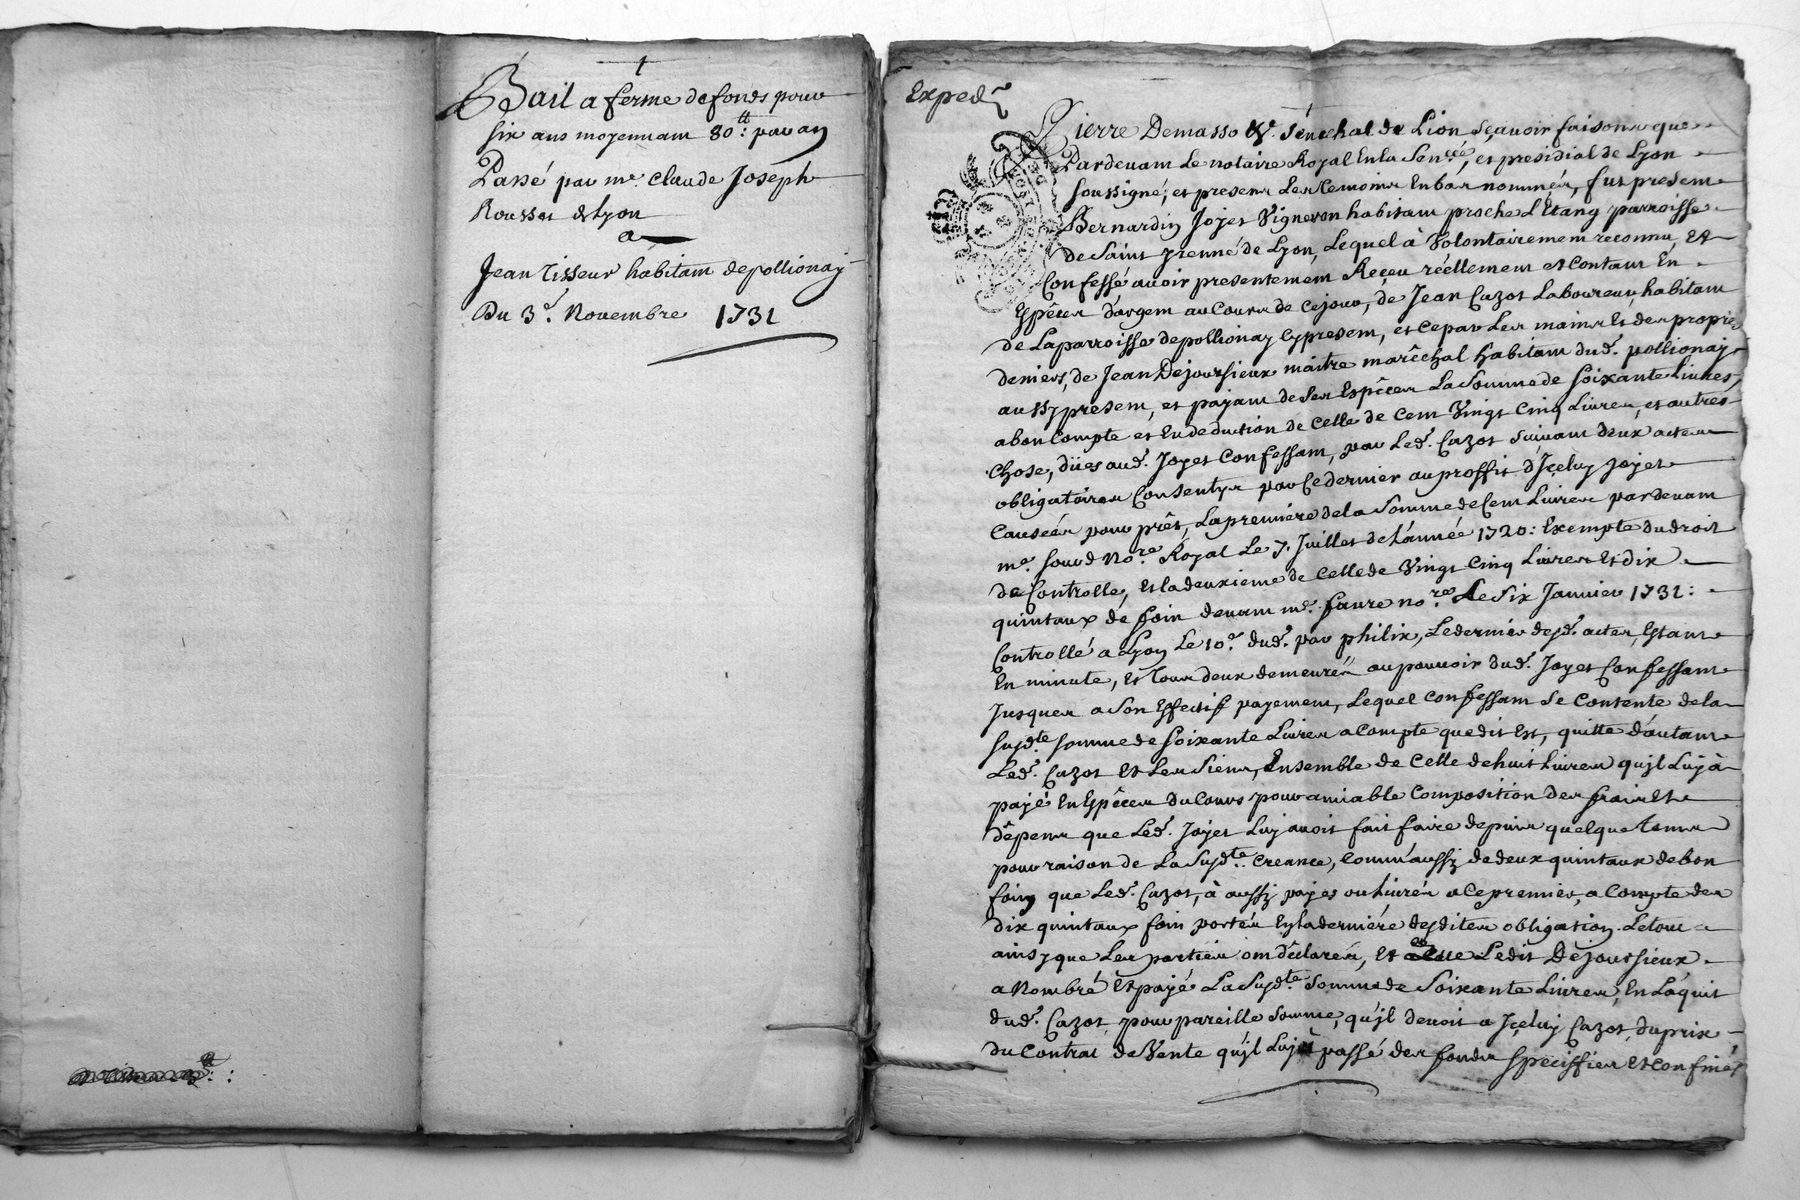 Bail a ferme de fonds pour
six ans moyennant 80ᵗᵗ: par an
Passé par mᵉ. Claude Joseph
Rousset de Lyon
a
Jean Tisseur habitant de pollionay
Du 3ᵉ. Novembre 1731
Expedᵉ
Pierre Demasso &ᵃ. sénéchal de Lion sçavoir faisons que
Pardevant Le notaire Royal En la Senᶜᵉᵉ, et presidial de Lyon
soussigné, et presens Les temoins En bas nommés, fut present
Bernardin Joyet Vigneron habitant proche L'Etang parroisse
de Saint yrenné de Lyon, Lequel à Volontairement reconnu, Et
Confessé avoir presentement Reçeu réellement et contant En
Espêces d'argent au Cours de ce jour, de Jean Cazot Laboureur habitant
de La parroisse de pollionay cy present, et ce par Les mains Et des propres
deniers, de Jean Dejoussieux maitre maréchal habitant dudᵗ. pollionay
aussy present, et payant de Ses Espêces La Somme de soixante Livres,
a bon Compte et En deduction de Celle de Cent Vingt Cinq Livres, et autres
chose, düés audᵗ. Joyet Confessant, par Ledᵗ. Cazot suivant deux actes
obligatoires Consentys par Ce dernier au proffit d'Jçeluy Joyet
Causéés pour prêt, La premiére de la Somme de Cent Livres pardevant
mᵉ. Noʳᵉ Royal Le 7. Juillet de L'année 1720: Exempte du droit
de Controlle, Et la deuxieme de Celle de Vingt Cinq Livres Et dix
quintaux de foin devant mᵉ. faure noʳᵉ Le Six Janvier 1731:
Controllé a Lyon Le 10ᵉ dudᵗ. par philix, Le dernier desdᵗ. actes, Estant
En minute, Et Tous deux demeurés au pouvoir dudᵗ. Joyet Confessant
Jusques a Son Effectif payement, Lequel confessant Se Contente de la
susdᵗᵉ somme de Soixante Livres a Compte que dit Est, quitte d'autant
Ledᵗ. Cazot Et Les Siens, Ensemble de Celle de huit Livres qu'jl Luy à
payé En Espêces du Cours pour amiable Composition des frais Et
dêpens que Ledᵗ. Joyet Luy avoit fait faire depuis quelque tems
pour raison de La Susdᵗᵉ. Creance, Comm'aussy de deux quintaux de bon
foin que Ledᵗ. Cazot, à aussy payés ou Livrés a Ce premier, a Compte des
dix quintaux foin portés En la derniére desdites obligation. Le tout
ainsy que Les parties ont dêclarés, Et Ledit Dejoussieux
a Nombré Et payé La Susdᵗᵉ. Somme de Soixante Livres, En L'aquit
dudᵗ. Cazot pour pareille Somme, qu'jl devoit a Jçeluy Cazot, du prix
du Contrat de Vente qu'jl Luy à passé des fonds Speciffiés Et Confinés